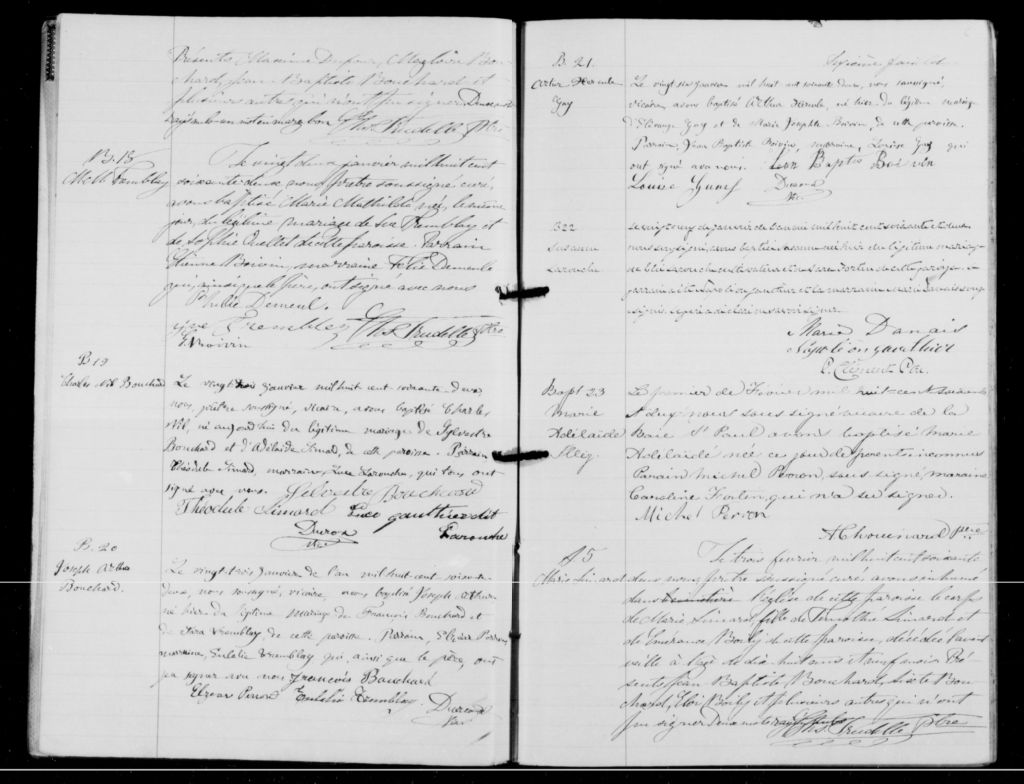 Présents Maxime Dufour, Magloire Bou-
chard, Jean Baptiste Bouchard et
plusieurs autres qui n'ont pu signer. Deux mots
rayés nuls en note en marge bon. Ths. Trudelle Ptre
B. 18
M. M. Tremblay
Le vingt deux janvier mil huit cent
soixante deux, nous prêtre soussigné curé,
avons baptisé Marie Mathilde, née le même
jour, du légitime mariage de Tremblay et
de Sophie Ouellet de cette paroisse. Parrain
Etienne Boivin, marraine Demeule
qui, ainsi que le père, ont signé avec nous
Demeul.
Tremblay Ths. Trudelle Ptre
E. Boivin
B. 19
Charles Nil Bouchard
Le vingt trois janvier mil huit cent soixante-deux,
nous, prêtre soussigné, vicaire, avons baptisé Charles
Nil, né aujourd'hui du légitime mariage de Sylvestre
Bouchard et d'Adélaïde Simard, de cette paroisse. Parrain
Théodule Simard, marraine, Luce Larouche, qui tous ont
signé avec nous. Silvestre Bouchard
Théodule Simard Luce gauthier dit
Larouche
Ptre
B. 20
Joseph Arthur
Bouchard.
Le vingt-trois janvier de l'an mil huit cent soixante-
deux, nous, soussigné, vicaire, avons baptisé Joseph Arthur
né hier du légitime mariage de François Bouchard et
de Tremblay de cette paroisse. Parrain, Elzéar Perron,
marraine, Eulalie Tremblay qui, ainsi que le père, ont
signé avec nous François Bouchard
Elzear Perron Eulalie Tremblay
Ptre
B. 21.
Arthur Hercule
Guay
Le vingt six janvier mil huit cent soixante deux, nous soussigné,
vicaire, avons baptisé Arthur Hercule, né hier du légitime mariage
Guay et de Marie Josephte Boivin, de cette paroisse.
Parrain, Jean Baptiste Boivin, marraine, Louise Guay qui
ont signé avec nous. Jean Baptis Boivin
Louise Guay
Ptre
B 22
Susanne
Larouche
Le vingt neuf de janvier de l'an mil huit cent soixante et deux
nous soussigné, avons baptisé Susanne née hier du légitime mariage
de Larouche cultivateur et Fortin de cette paroisse. Le
parrain a été Napoléon gauthier et la marraine Marie Danais sous-
signés. Le père a déclaré ne savoir signer.
Maria Danais
Napoléon gauthier
P. Clément Ptre.
Bapt 23
Marie
Adélaïde
Illég.
Le premier de Février mil huit-cent soixante
et deux nous sous signé vicaire de la
Baie St Paul avons baptisé Marie
Adélaïde née ce jour de parents inconnus
Parain Michel Perron, sous signé, maraine
Caroline Fortin, qui n'a su signer.
Michel Perron
A Chouinard Ptre
S 5
Marie Simard
Le trois février, mil huit cent soixante
deux nous prêtre soussigné curé avons inhumé
dans l'église de cette paroisse le corps
de Marie Simard, fille de Timothé Simard et
de Emérance Boily de cette paroisse, décédée l'avant
veille à l'age de dix huit ans et neuf mois Pré-
sents Jean Baptiste Bouchard, Sixte Bou-
chard, Eloi Boily et plusieurs autres qui n'ont
pu signer. Deux mots rayés nuls Ths. Trudelle Ptre